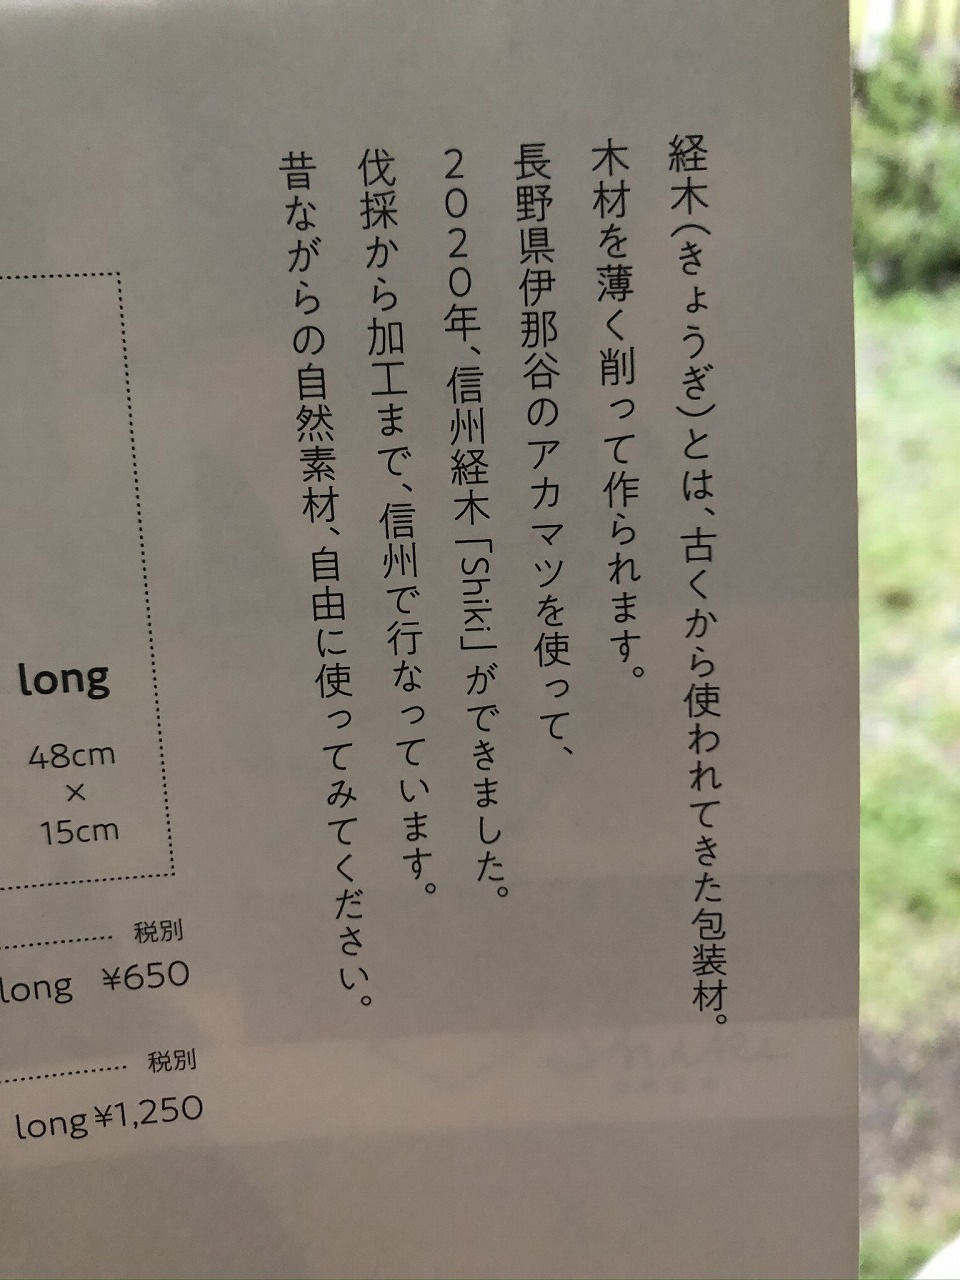 経木(きょうぎ)とは、古くから使われてきた包装材。
木材を薄く削って作られます。
長野県伊那谷のアカマツを使って、
2020年、信州経木「Shiki」ができました。
伐採から加工まで、信州で行なっています。
昔ながらの自然素材、自由に使ってみてください。
long
48cm
×
15cm
税別
long ¥650
税別
long ¥1,250